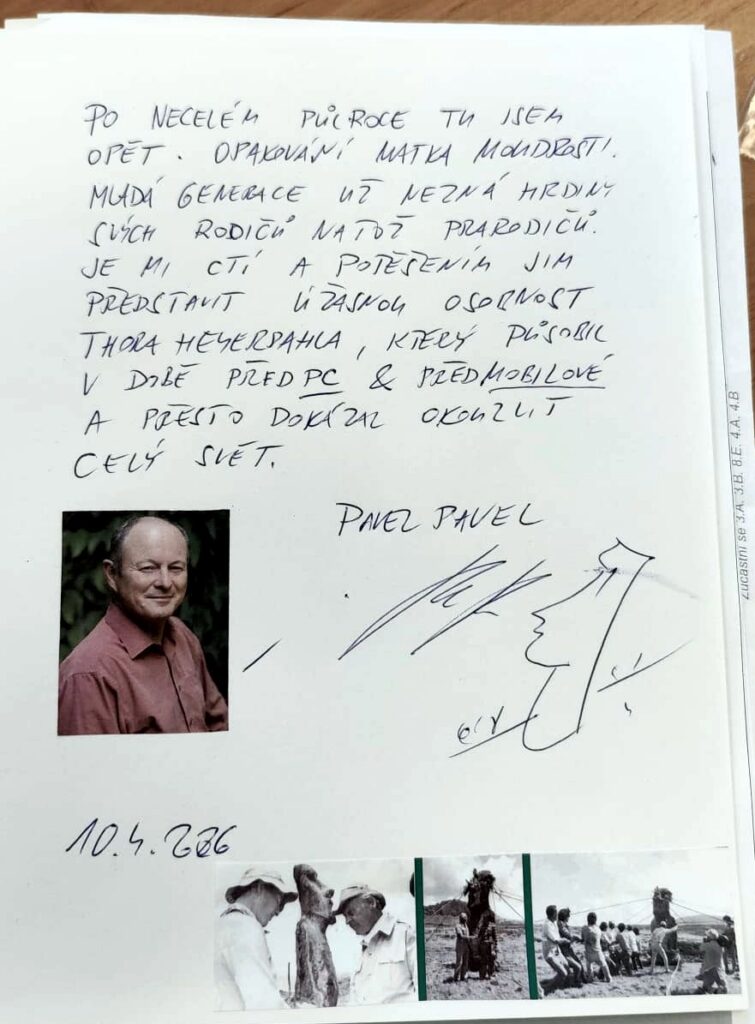 PO NECELÉM PŮLROCE TU JSEM
OPĚT. OPAKOVÁNÍ MATKA MOUDROSTI.
MLADÁ GENERACE UŽ NEZNÁ HRDINY
SVÝCH RODIČŮ NATOŽ PRARODIČŮ.
JE MI CTÍ A POTĚŠENÍM JIM
PŘEDSTAVIT ÚŽASNOU OSOBNOST
THORA HEYERDAHLA, KTERÝ PŮSOBIL
V DOBĚ PŘED PC & PŘEDMOBILOVÉ
A PŘESTO DOKÁZAL OKOUZLIT
CELÝ SVĚT.
PAVEL PAVEL
10.4.
zúčastní se 3.A, 3.B, 8.E, 4.A, 4.B